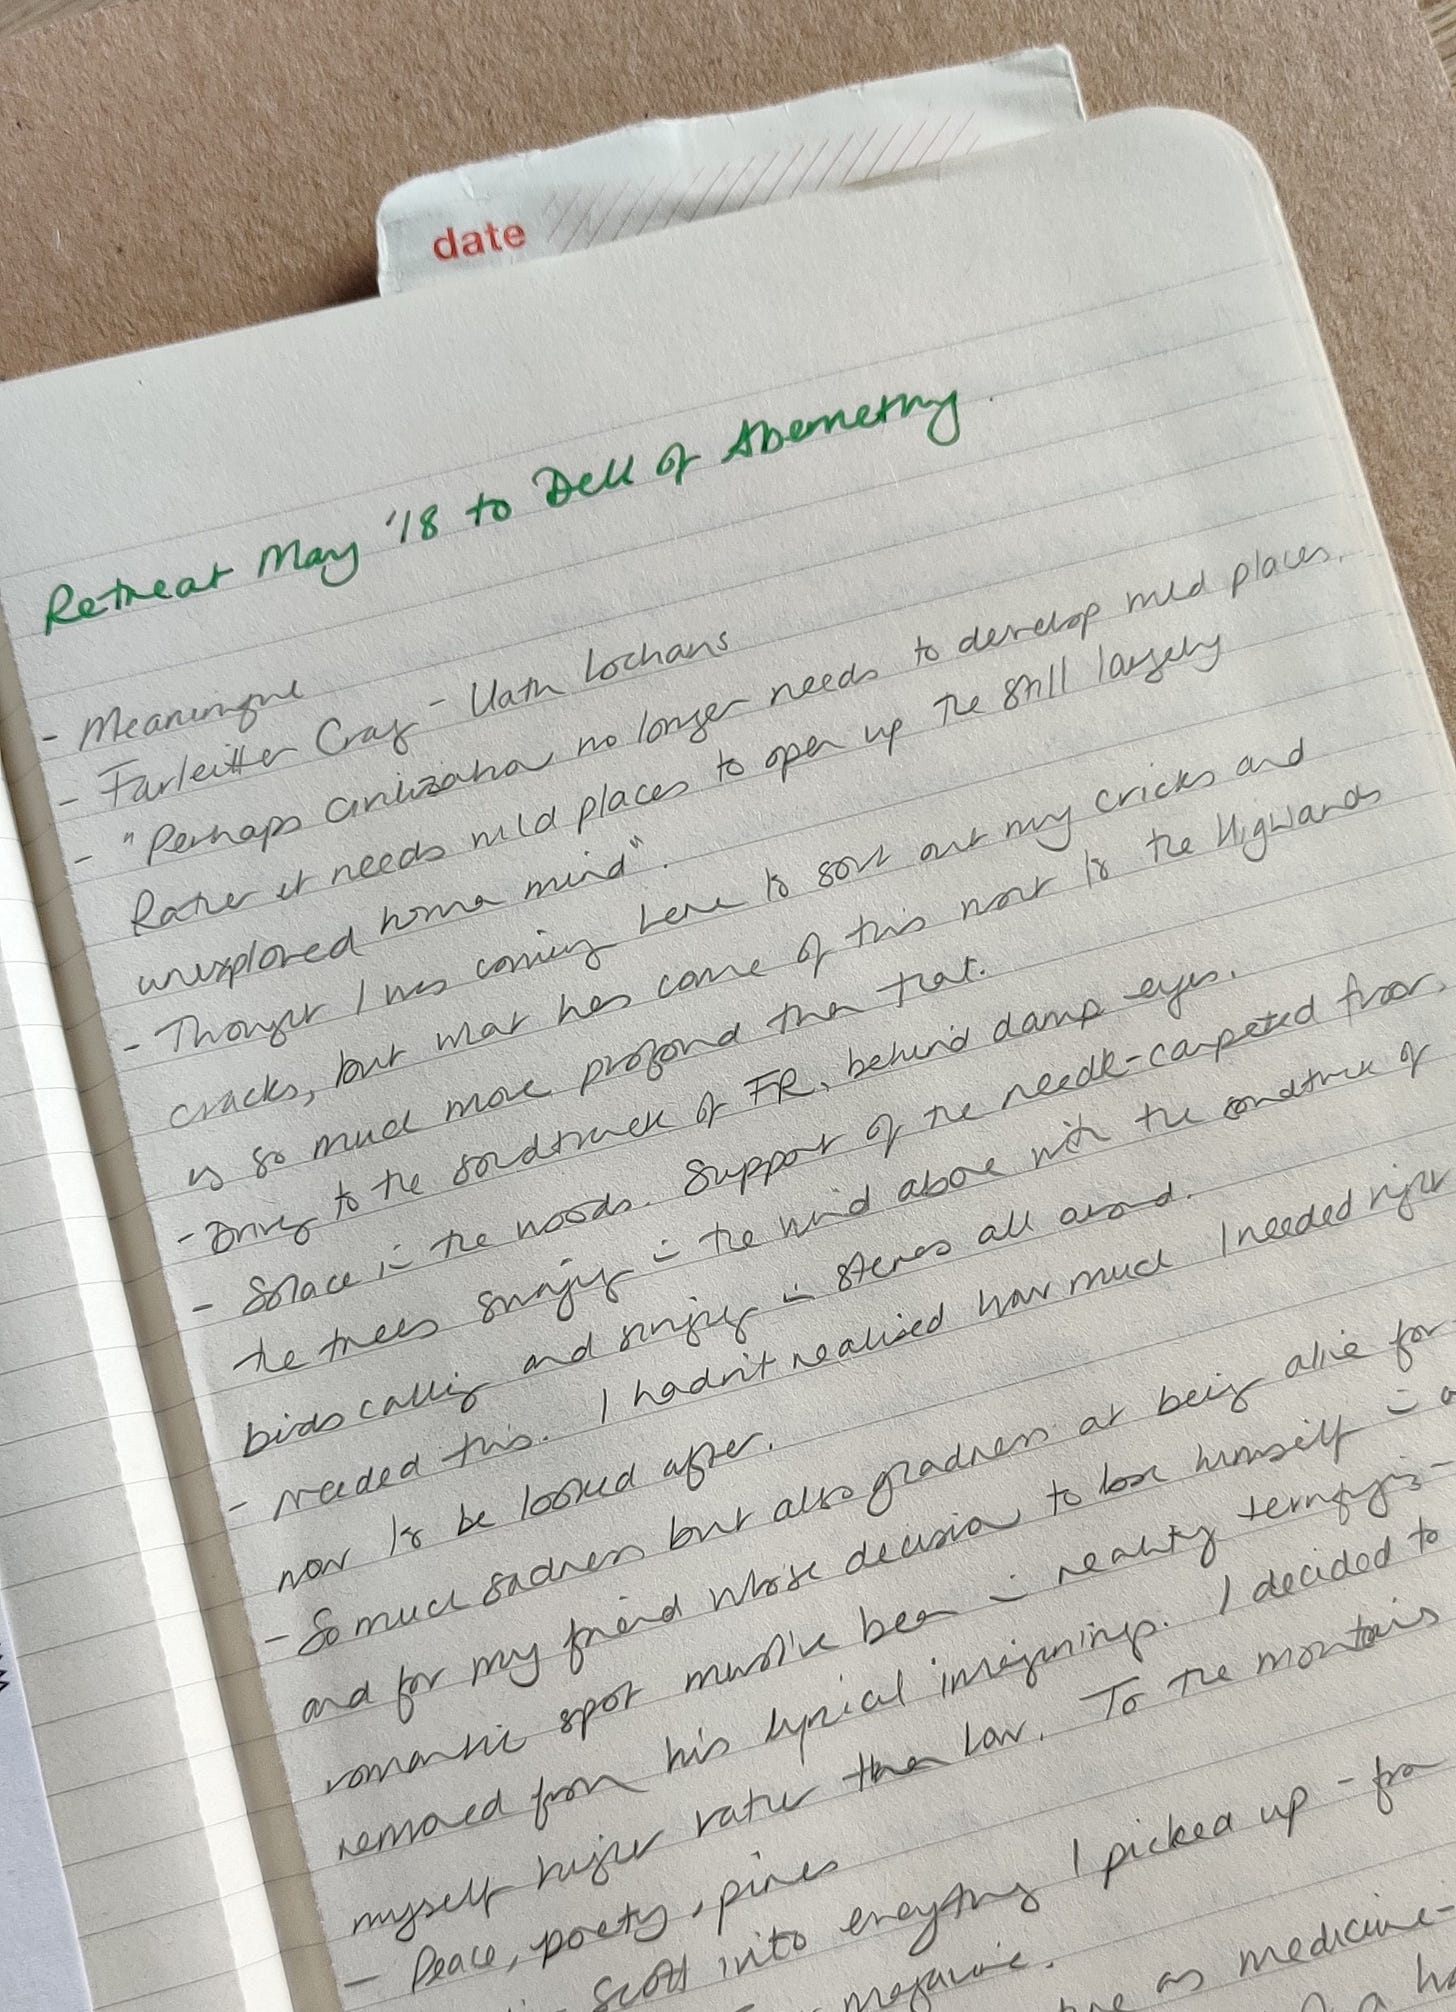 date
Retreat May '18 to Dell of Abernethy.
- Meaningful
- Farleitter Crag - Uath Lochans
- "Perhaps civilization no longer needs to develop wild places.
Rather it needs wild places to open up the still largely
unexplored human mind".
- Thought I was coming here to sort out my cricks and
cracks, but what has come of this visit to the Highlands
is so much more profound than that.
- Driving to the soundtrack of FR, behind damp eyes.
- Solace in the woods. Support of the needle-carpeted floor,
the trees swaying in the wind above with the soundtrack of
birds calling and singing in stereo all around.
- Needed this. I hadn't realised how much I needed right
now to be looked after.
- So much sadness but also gladness at being alive for
and for my friend whose decision to lose himself in a
romantic spot must've been in reality terrifying -
removed from his lyrical imaginings. I decided to
myself higher rather than low. To the mountains
- Peace, poetry, pines
Scott into everything I picked up - from
magazine.
as medicine -